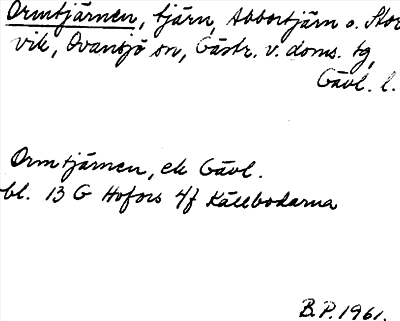 Ormtjärnen, tjärn, Abbortjärn o. Stor
vik, Ovansjö sn, Gästr. v. doms. tg,
Gävl. l.
Ormtjärnen, ek Gävl.
bl. 13 G Hofors 4f Källbodarna
B.P. 1961.